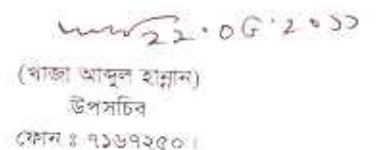 ২২.০৫.২০১১
(খাজা আব্দুল হান্নান)
উপসচিব
ফোন ঃ ৭১৬৭২৫০।